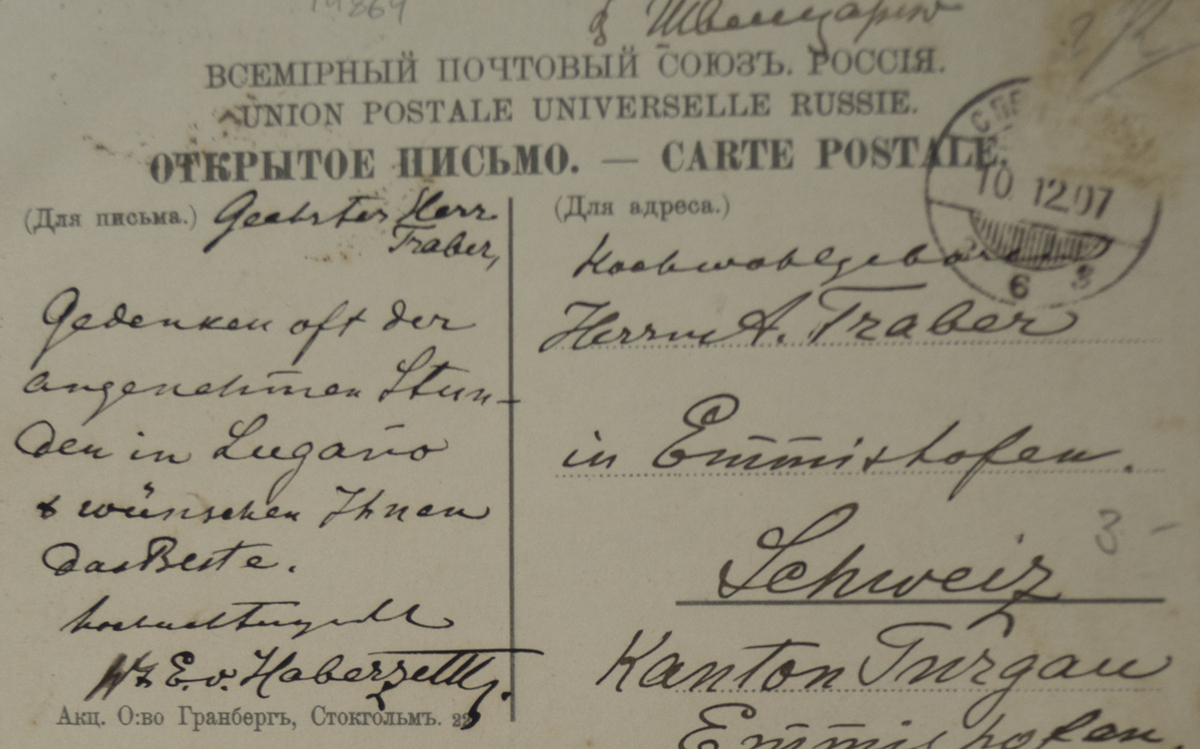 19869
в Швейцарію
ВСЕМІРНЫЙ ПОЧТОВЫЙ СОЮЗЪ. РОССІЯ.
UNION POSTALE UNIVERSELLE RUSSIE.
ОТКРЫТОЕ ПИСЬМО. — CARTE POSTALE.
10 12.07
6
3
(Для письма.)
Geehrter Herr
Traber,
Gedenken oft der
angenehmen Stun-
den in Lugano
& wünschen Ihnen
das Beste.
hochachtungsvoll
E. v. Haberzettl
(Для адреса.)
Hochwohlgeboren
Herrn A. Traber
in Emmishofen.
Schweiz
Kanton Turgau
Emmishofen.
3.-
Акц. О:во Гранбергъ, Стокгольмъ.